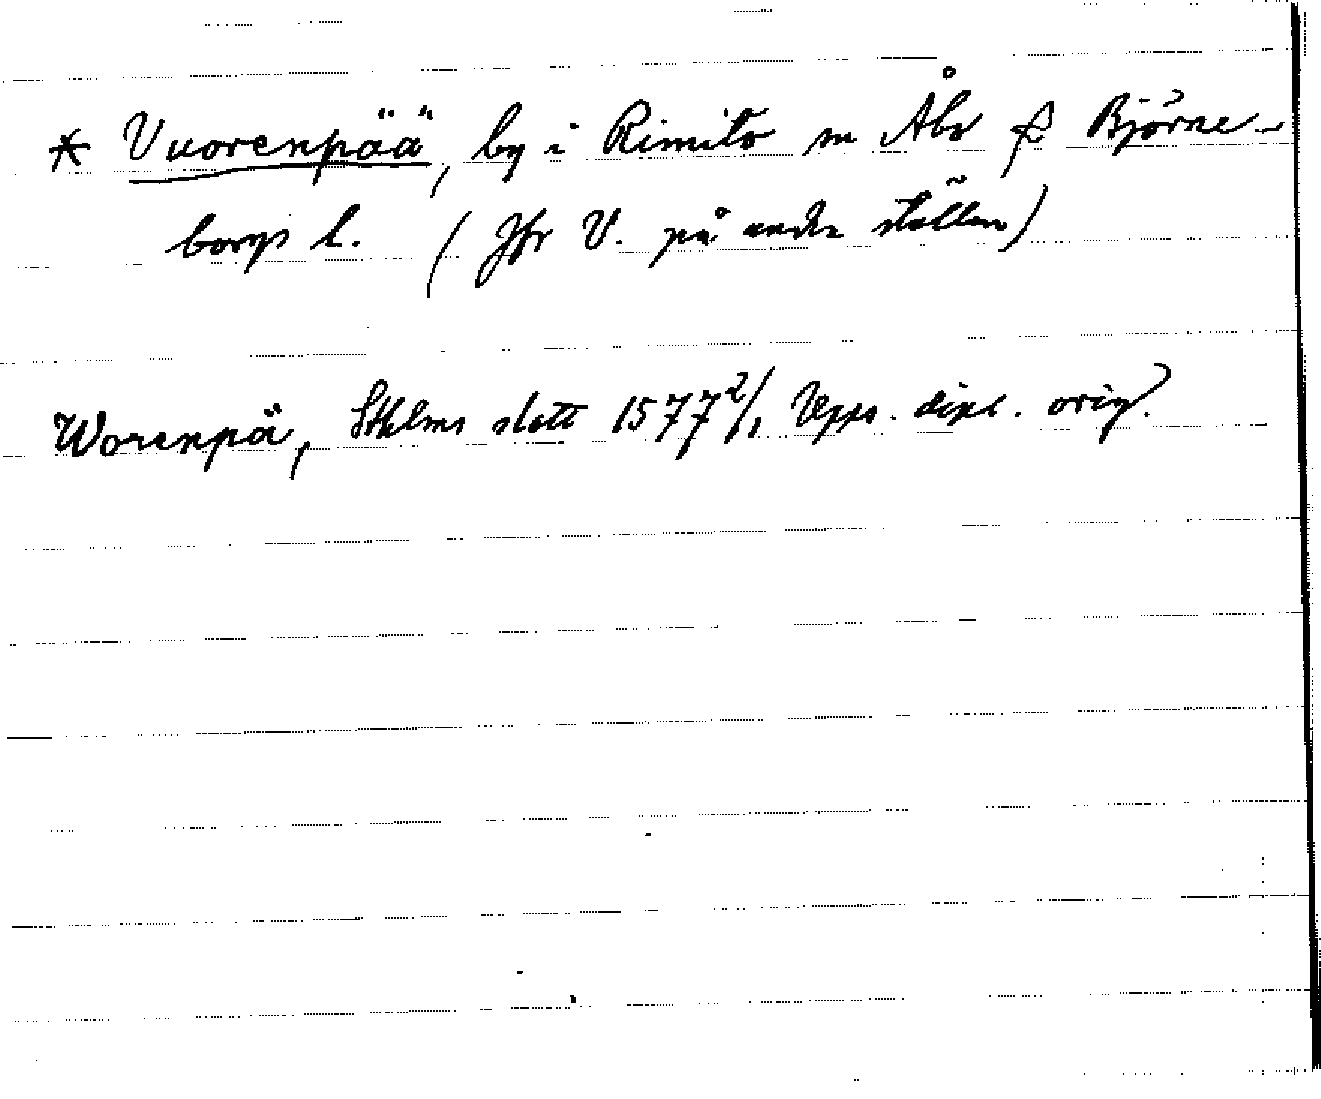 * Vuorenpää, by i Rimito sn Åbo o Björne-
borgs l. (Jfr V. på andra ställen)
Worenpä, Sthlms slott 1577 2/1 Upps. dipl. orig.